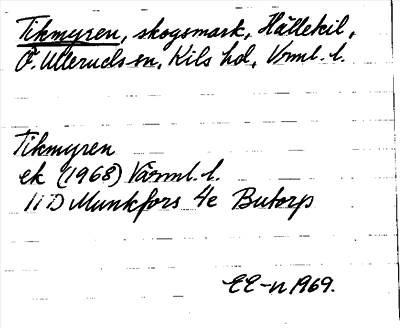 Tikmyren, skogsmark, Hällekil,
Ö. Ulleruds sn, Kils hd, Vrml. l.
Tikmyren
ek (1968) Värml. l.
11D Munkfors 4e Butorp
EE-n 1969.